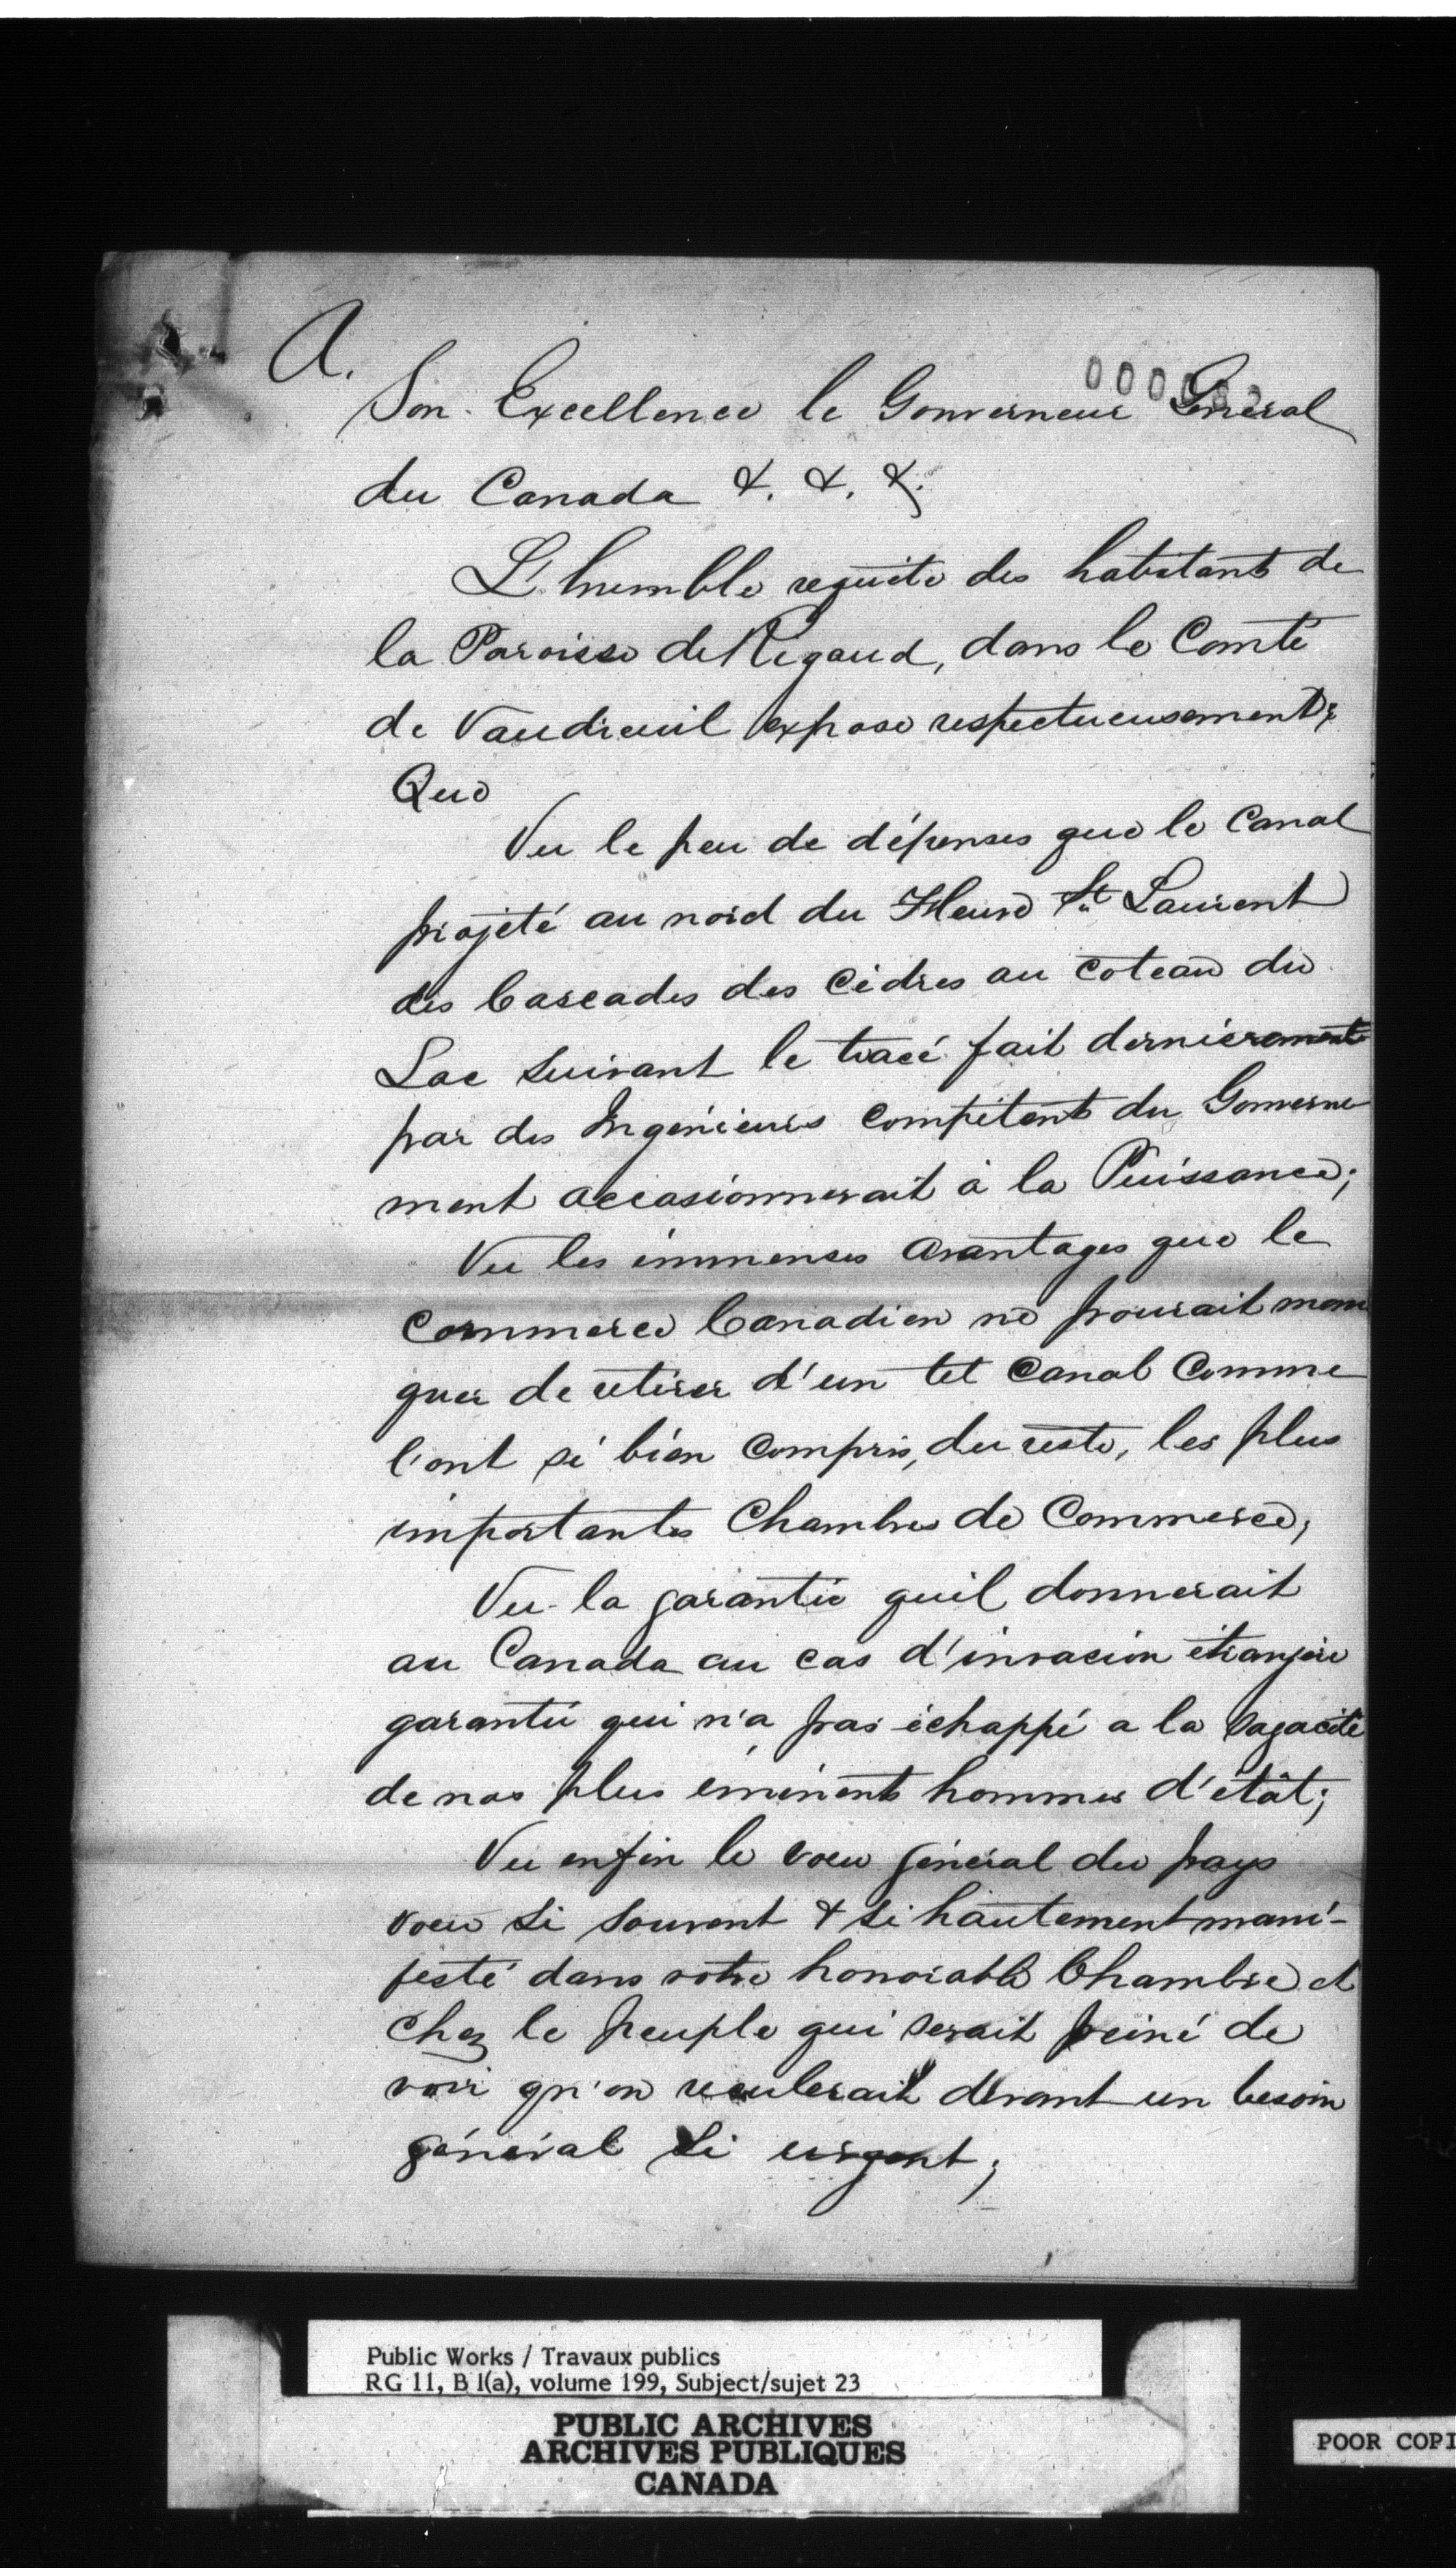 A.
Son Excellence le Gouverneur Général
du Canada &. &. &.
L'humble requête des habitants de
la Paroisse de Rigaud, dans le Comté
de Vaudreuil expose respectueusement;
Que
Vu le peu de dépenses que le Canal
projeté au nord du Fleuve St Laurent
des Cascades des Cèdres au coteau du
Lac suivant le tracé fait dernièrement
par des Ingénieurs compétents du Gouverne
ment occasionnerait à la Puissance;
Vu les immenses avantages que le
commerce Canadien ne pourait man
quer de retirer d'un tel canal comme
l'ont si bien compris, du reste, les plus
importantes Chambres de Commerce;
Vu la garantie quil donnerait
au Canada au cas d'invasion étrangère
garantie qui n'a pas échappé a la sagacité
de nos plus éminents hommes d'état;
Vu enfin le voeu général du pays
voeu si souvent & si hautement mani-
festé dans votre honorable Chambre et
chez le peuple qui serait peiné de
voir qu'on reculerait devant un besoin
général si urgent;
Public Works / Travaux publics
RG 11, B 1(a), volume 199, Subject/sujet 23
PUBLIC ARCHIVES
ARCHIVES PUBLIQUES
CANADA
POOR COPI